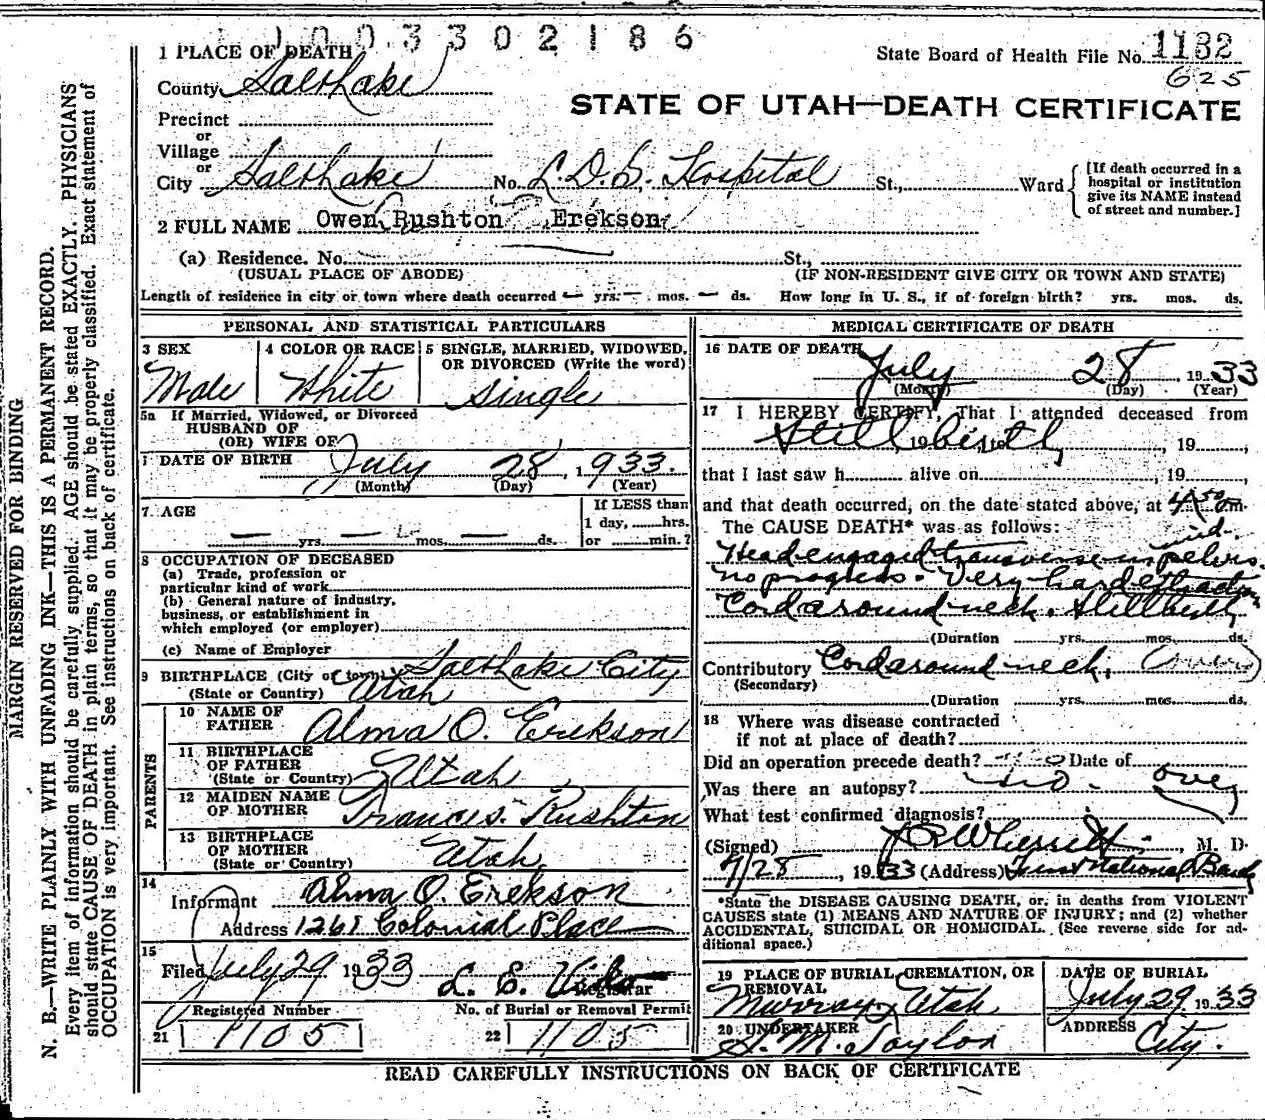 1003302186
1 PLACE OF DEATH
State Board of Health File No. 1132
625
County Salt Lake
STATE OF UTAH—DEATH CERTIFICATE
Precinct
or
Village
or
City Salt Lake No. L.D.S. Hospital St., Ward
[If death occurred in a
hospital or institution
give its NAME instead
of street and number.]
2 FULL NAME Owen Rushton Erekson
(a) Residence. No. St.,
(USUAL PLACE OF ABODE) (IF NON-RESIDENT GIVE CITY OR TOWN AND STATE)
Length of residence in city or town where death occurred — yrs. — mos. — ds. How long in U. S., if of foreign birth? yrs. mos. ds.
PERSONAL AND STATISTICAL PARTICULARS
3 SEX 4 COLOR OR RACE 5 SINGLE, MARRIED, WIDOWED,
OR DIVORCED (Write the word)
Male White Single
5a If Married, Widowed, or Divorced
HUSBAND OF
(OR) WIFE OF
DATE OF BIRTH July 28, 1933.
(Month) (Day) (Year)
7 AGE
If LESS than
1 day, hrs.
— yrs. — mos. — ds. or min.?
8 OCCUPATION OF DECEASED
(a) Trade, profession or
particular kind of work
(b) General nature of industry,
business, or establishment in
which employed (or employer)
(c) Name of Employer
9 BIRTHPLACE (City or town) Salt Lake City
(State or Country) Utah
PARENTS
10 NAME OF
FATHER Alma O. Erekson
11 BIRTHPLACE
OF FATHER
(State or Country) Utah
12 MAIDEN NAME
OF MOTHER Frances Rushton
13 BIRTHPLACE
OF MOTHER
(State or Country) Utah
14
Informant Alma O. Erekson
Address 1261 Colonial Place
15
Filed July 29 1933 L. E.
Registrar
Registered Number No. of Burial or Removal Permit
21 1105 22 1105
MEDICAL CERTIFICATE OF DEATH
16 DATE OF DEATH
July 28, 1933
(Month) (Day) (Year)
17 I HEREBY CERTIFY, That I attended deceased from
Stillbirth, 19 , to , 19
that I last saw h alive on , 19 ,
and that death occurred, on the date stated above, at 4 50 m.
The CAUSE DEATH* was as follows:
Head engaged transverse in mid. pelvis.
no progress. Very hard extraction
Cord around neck. Stillbirth
(Duration yrs. mos. ds.
Contributory Cord around neck.
(Secondary)
(Duration yrs. mos. ds.
18 Where was disease contracted
if not at place of death?
Did an operation precede death? no Date of
Was there an autopsy? no.
What test confirmed diagnosis?
(Signed) , M. D.
7/28, 1933 (Address) First National Bank
*State the DISEASE CAUSING DEATH, or, in deaths from VIOLENT
CAUSES state (1) MEANS AND NATURE OF INJURY; and (2) whether
ACCIDENTAL, SUICIDAL OR HOMICIDAL. (See reverse side for ad-
ditional space.)
19 PLACE OF BURIAL, CREMATION, OR
REMOVAL
Murray, Utah
DATE OF BURIAL
July 29 1933
20 UNDERTAKER
S. M. Taylor
ADDRESS
City.
READ CAREFULLY INSTRUCTIONS ON BACK OF CERTIFICATE
MARGIN RESERVED FOR BINDING
N. B.—WRITE PLAINLY WITH UNFADING INK—THIS IS A PERMANENT RECORD.
Every item of information should be carefully supplied. AGE should be stated EXACTLY. PHYSICIANS
should state CAUSE OF DEATH in plain terms, so that it may be properly classified. Exact statement of
OCCUPATION is very important. See instructions on back of certificate.